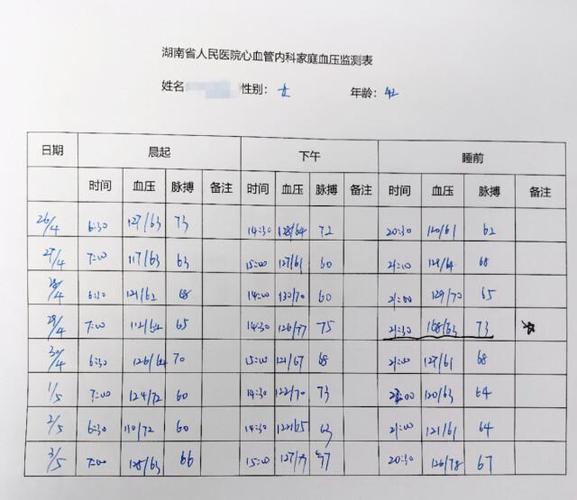 湖南省人民医院心血管内科家庭血压监测表
姓名 性别: 女 年龄: 42
日期 晨起 下午 睡前
时间 血压 脉搏 备注 时间 血压 脉搏 备注 时间 血压 脉搏 备注
26/4 6:30 127/63 73 14:30 128/64 72 20:30 120/61 62
27/4 7:00 117/63 63 15:00 127/61 60 21:00 128/64 68
28/4 6:30 121/62 68 14:00 130/70 60 21:00 129/70 65
29/4 7:00 112/62 65 14:30 126/77 75 21:30 168/63 73
30/4 6:30 126/64 70 15:00 121/67 68 21:00 127/61 68
1/5 7:00 124/72 60 14:30 122/70 73 21:00 120/63 64
2/5 6:30 110/72 60 14:30 122/65 63 21:00 121/61 64
3/5 7:00 128/63 66 15:00 20:30 126/78 67